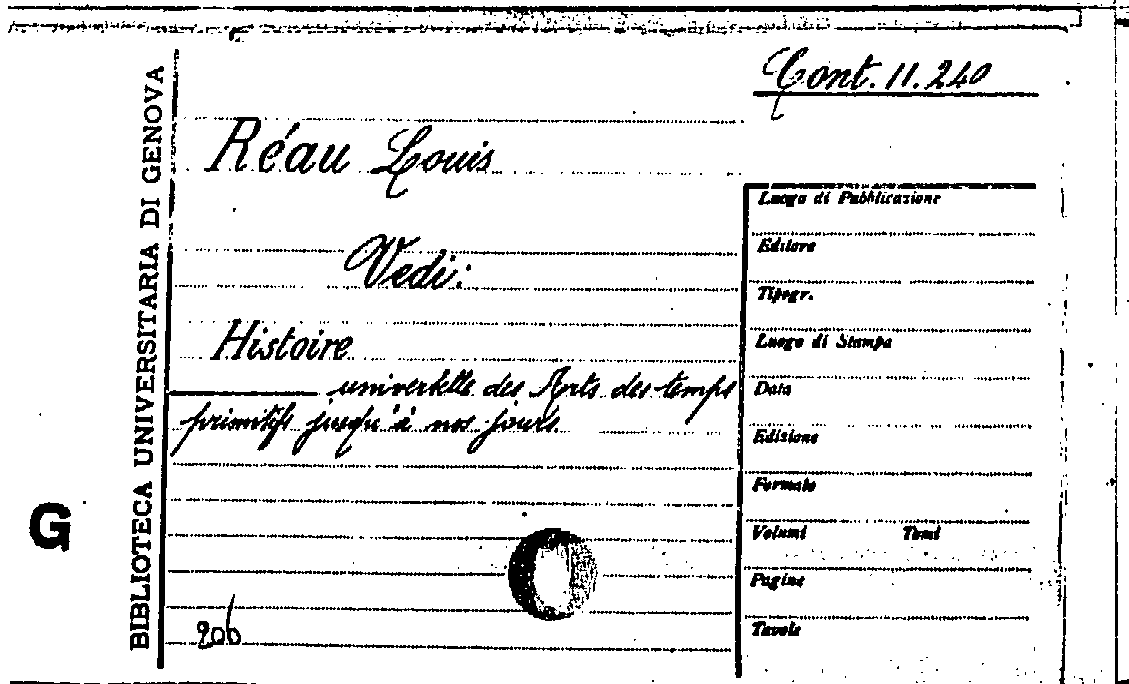 Cont. 11.240
BIBLIOTECA UNIVERSITARIA DI GENOVA
Réau Louis
Vedi:
Histoire
universelle des Arts des temps
primitifs jusqu'à nos jours.
G
206
Luogo di Pubblicazione
Editore
Tipogr.
Luogo di Stampa
Data
Edizione
Formato
Volumi Tomi
Pagine
Tavole